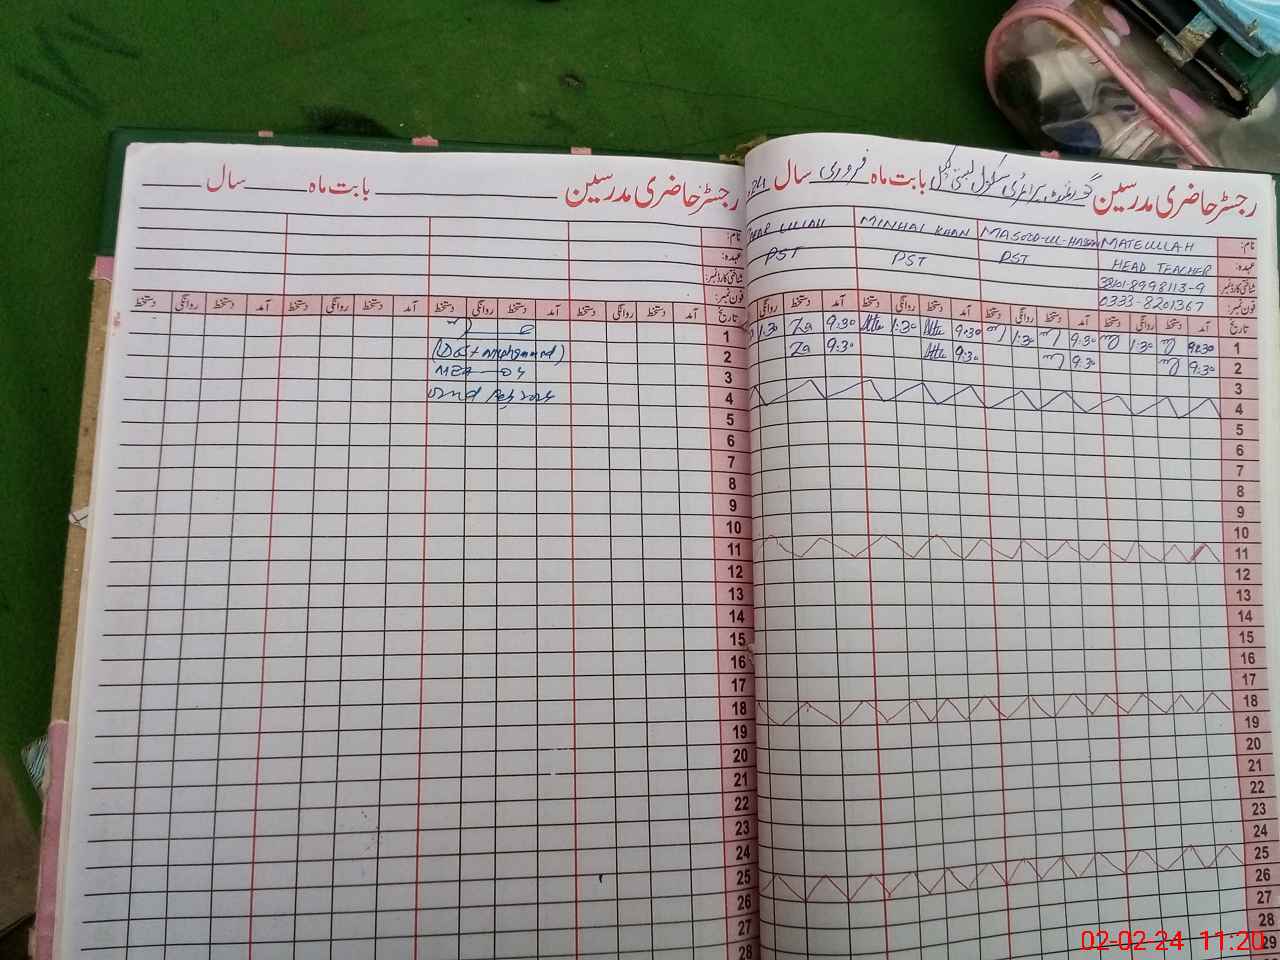 رجسٹر حاضری مدرسین گورنمنٹ پرائمری سکول بستی بابت ماہ فروری سال 24
نام: MATEULLAH MASOOD-UL-HASSAN MINHAL KHAN
عہدہ: HEAD TEACHER PST PST PST
شناختی کارڈ نمبر: 38101-8998113-9
فون نمبر: 0333-8201367
تاریخ آمد دستخط روانگی دستخط آمد دستخط روانگی دستخط آمد دستخط روانگی دستخط آمد دستخط روانگی
1 9:30 1:30 9:30 1:30 9:30 1:30 9:30 Za 1:30
2 9:30 9:30 9:30 9:30 Za
3
4
5
6
7
8
9
10
11
12
13
14
15
16
17
18
19
20
21
22
23
24
25
26
27
28
29
رجسٹر حاضری مدرسین بابت ماہ سال
نام:
عہدہ:
شناختی کارڈ نمبر:
فون نمبر:
تاریخ آمد دستخط روانگی دستخط آمد دستخط روانگی دستخط آمد دستخط روانگی دستخط آمد دستخط روانگی دستخط
1
2 (Dost Muhammad)
3 MEA 04
4 02nd Feb 2024
5
6
7
8
9
10
11
12
13
14
15
16
17
18
19
20
21
22
23
24
25
26
27
28
02-02-24 11:20